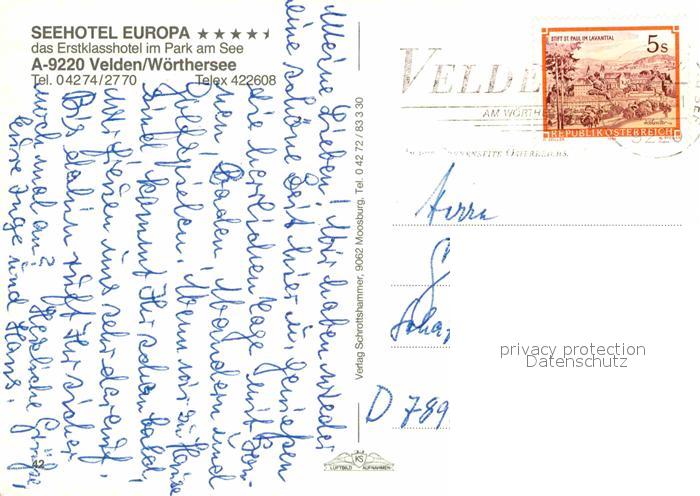 SEEHOTEL EUROPA ★★★★
das Erstklasshotel im Park am See
A-9220 Velden/Wörthersee
Tel. 04274/2770 Telex 422608
Meine Lieben! Wir haben wieder
eine schöne Zeit hier u. genießen
die herrlichen Tage mit Son-
nen Baden Wandern und
Golfspielen. Wenn wir zu Hause
sind kommt Ihr schon bald,
wir freuen uns sehr darauf.
Bis dahin ruft Ihr sicher
noch mal an? Herzliche Grüße,
Eure Inge und Hans.
42
Verlag Schrottshammer, 9062 Moosburg, Tel. 0 42 72 / 83 3 30
KS
LUFTBILD AUFNAHMEN
VELDE
AM WÖRTHE
ENSEITE ÖSTERREICHS.
STIFT ST. PAUL IM LAVANTTAL
5s
REPUBLIK ÖSTERREICH
Herrn
D 789
privacy protection
Datenschutz